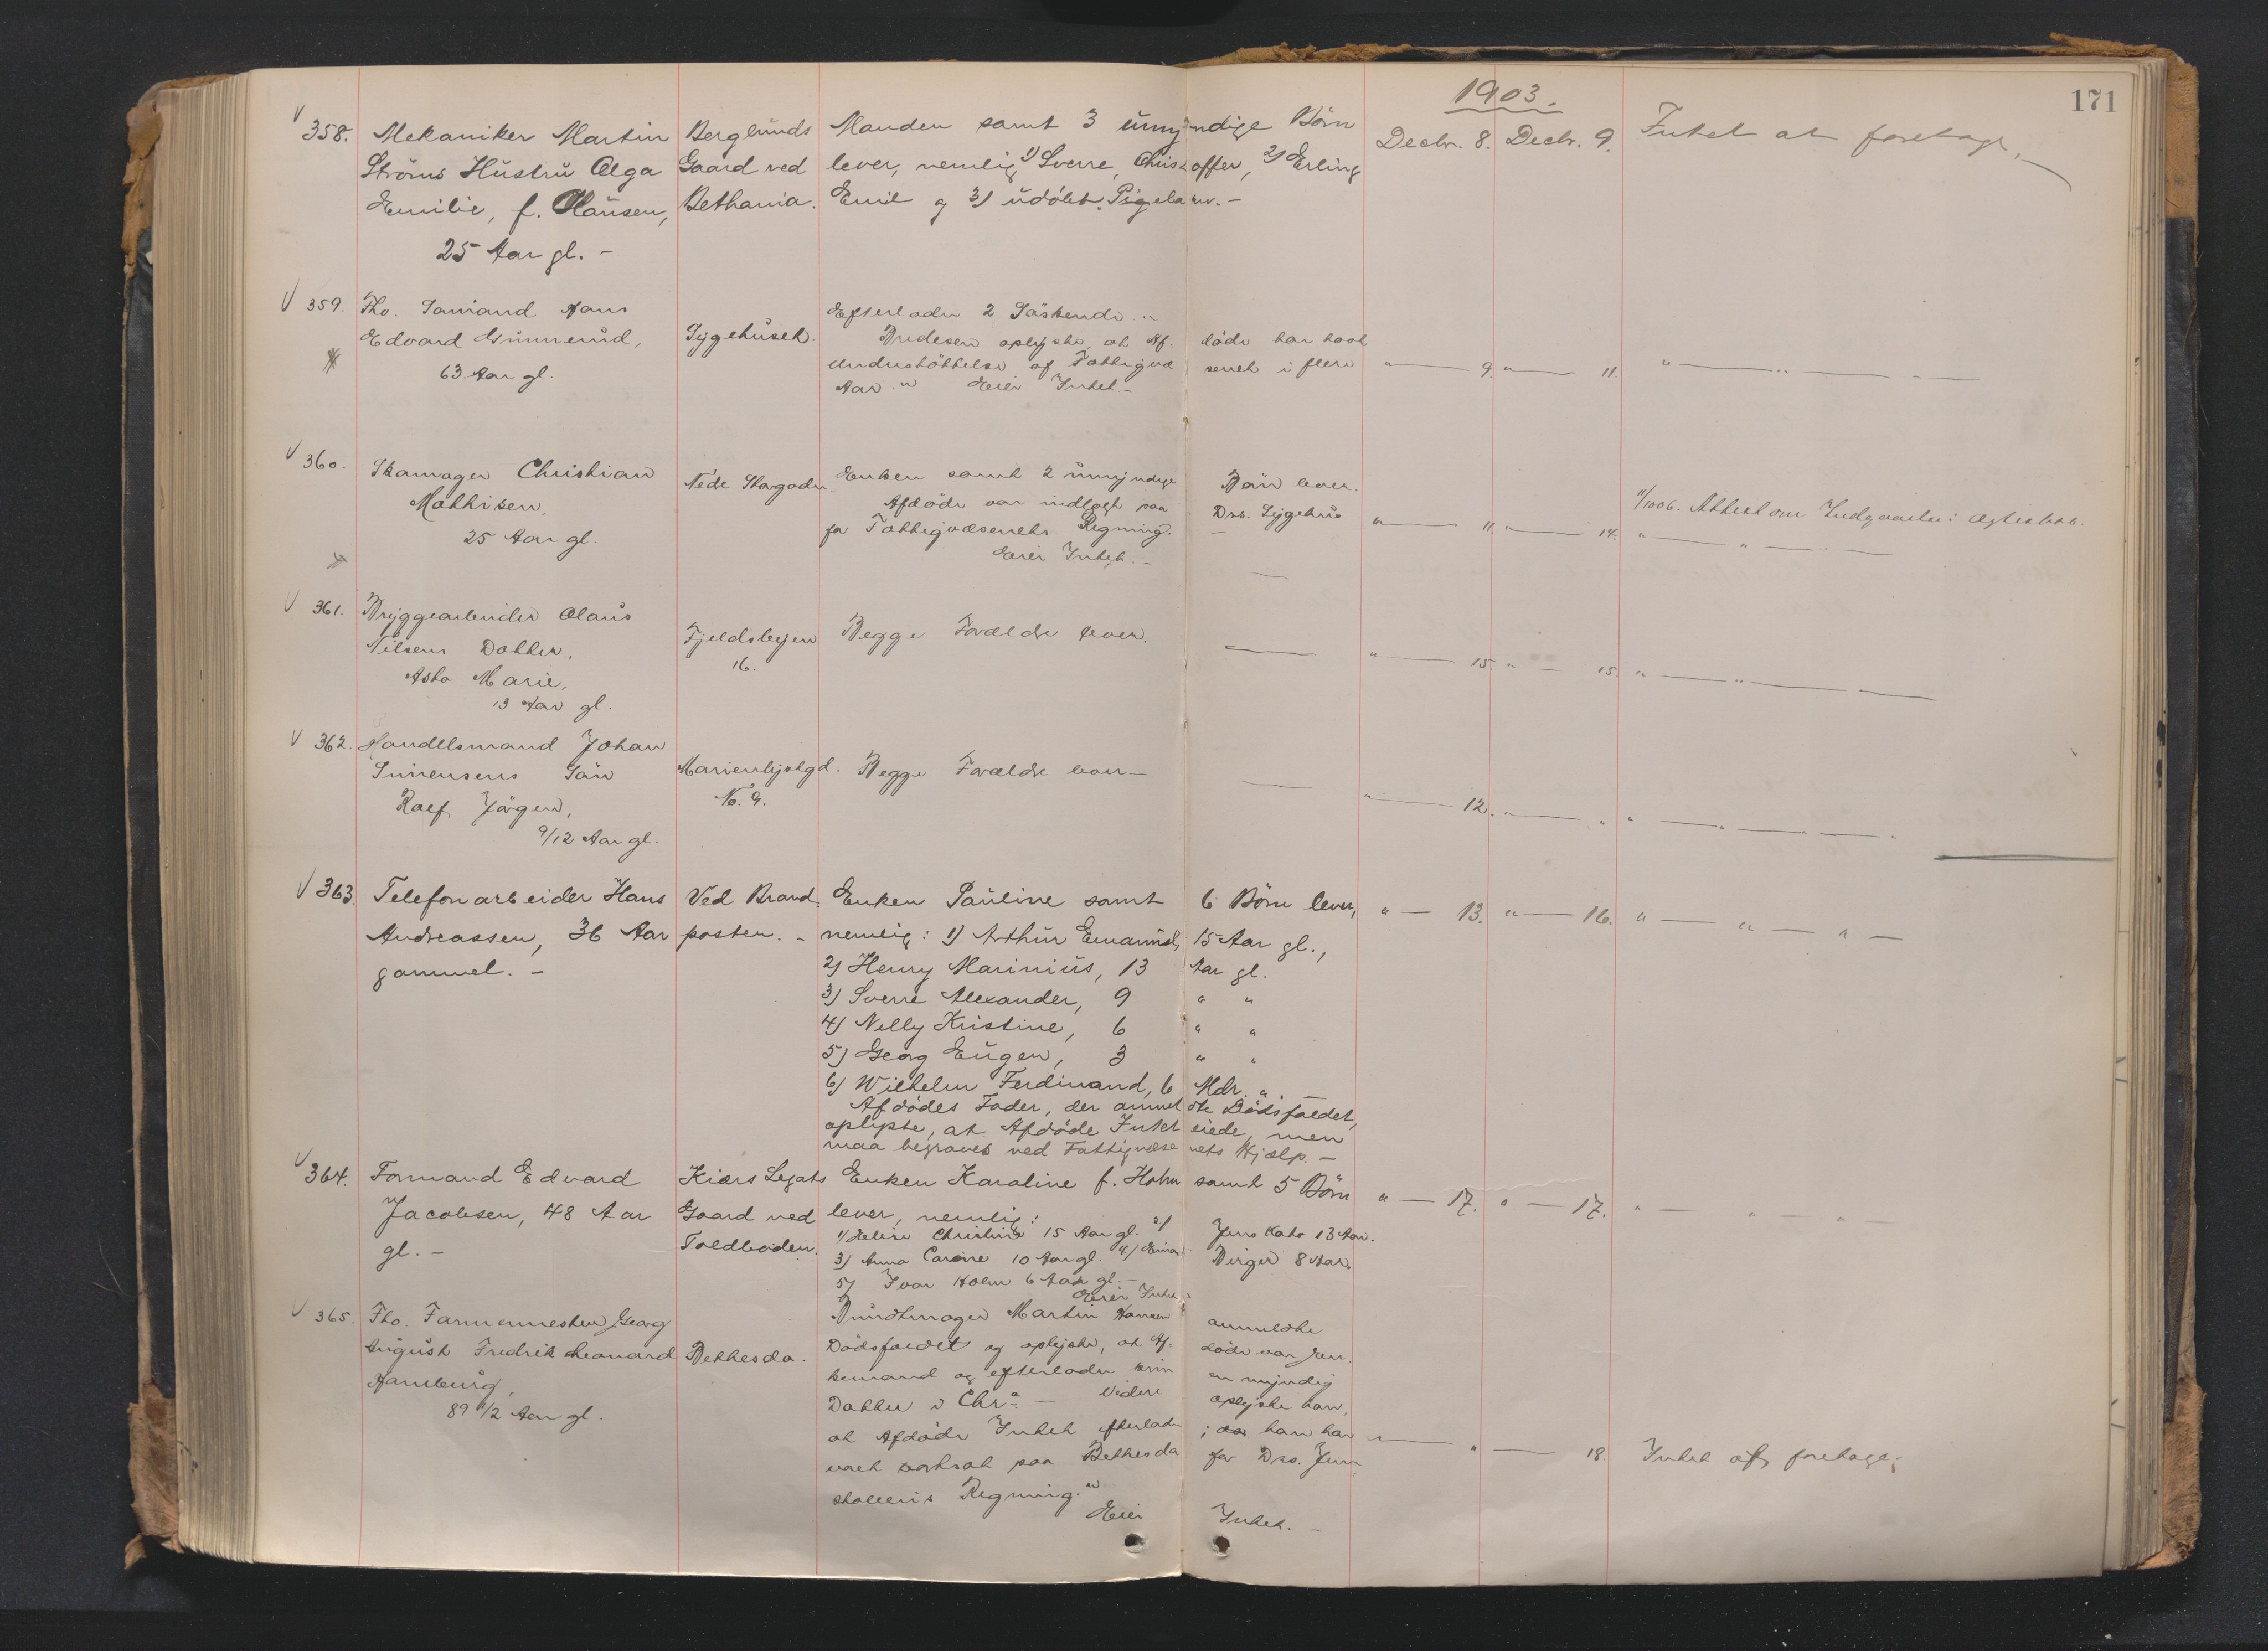 171
1903.
358. Mekaniker Martin
Ströms Hustru Olga
Emilie, f. Hansen,
25 Aar gl. –
Berglunds
Gaard ved
Bethania.
Manden samt 3 umyndige Börn
lever, nemlig 1) Sverre, Christoffer, 2) Erling
Emil og 3) udöbt Pigebarn. –
Decbr. 8. Decbr. 9.
Intet at foretage. –
359. Fho.
Edvard
63 Aar gl.
Sygehuset.
Efterlader 2 Söskende. "
oplyste, at Afdöde har havt
Understöttelse af Fattigvæsenet i flere
Aar. " Eier Intet. –
" — 9. " — 11. " — " — " —
360. Skomager Christian
Mathisen,
25 Aar gl.
Nedre Storgade.
Enken samt 2 umyndige Börn lever.
Afdöde var indlagt paa Drs. Sygehus
for Fattigvæsenets Regning. –
Eier Intet. –
" — 11. " — 14. " — " —
11/1006. Attest om Indgaaelse i Ægteskab.
361. Bryggearbeider Olaus
Nilsens Datter,
Asta Marie,
13 Aar gl.
Fjeldsbyen
16.
Begge Forældre lever.
" — 15. " — 15. " — " —
362. Handelsmand Johan
Sörensens Sön
Rolf Jörgen,
9/12 Aar gl.
Marienlystgd.
No. 9.
Begge Forældre lever –
" — 12. " — " " — " — " — "
363. Telefonarbeider Hans
Andreassen, 36 Aar
gammel. –
Ved Brand-
posten. –
Enken Pauline samt 6 Börn lever,
nemlig: 1) Arthur Emanuel, 15 Aar gl.,
2) Henry Marinius, 13 Aar gl.
3) Sverre Alexander, 9 " "
4) Nelly Kristine, 6 " "
5) Georg Eugen, 3 " "
6) Wilhelm Ferdinand, 6 Mdr. " –
Afdödes Fader, der anmeldte Dödsfaldet,
oplyste, at Afdöde Intet eiede, men
maa begraves ved Fattigvæsenets Hjælp. –
" — 13. " — 16. " — " — " —
364. Formand Edvard
Jacobsen, 48 Aar
gl. –
Kiærs Legats
Gaard ved
Toldboden.
Enken Karoline f. Holm samt 5 Börn
lever, nemlig:
1) Helene Christine 15 Aar gl. 2) Jens Kato 13 Aar.
3) Anna Caroline 10 Aar gl. 4) Einar Birger 8 Aar.
5) Ivar Holm 6 Aar gl. –
Eier Intet. –
" — 17. " — 17. " — " — " —
365. Fho. Farvermester Georg
August Fredrik Leonard
Hamburg,
89 1/2 Aar gl.
Bethesda.
Bundtmager Martin Hansen anmeldte
Dödsfaldet og oplyste, at Afdöde var Enkemand
og efterlader kun en myndig
Datter i Chr.a – Videre oplyste han,
at Afdöde Intet efterlader; han har
været forsörget paa Bethesda for Drs.
Regning. "
Eier Intet. –
" — " — 18. Intet at foretage.